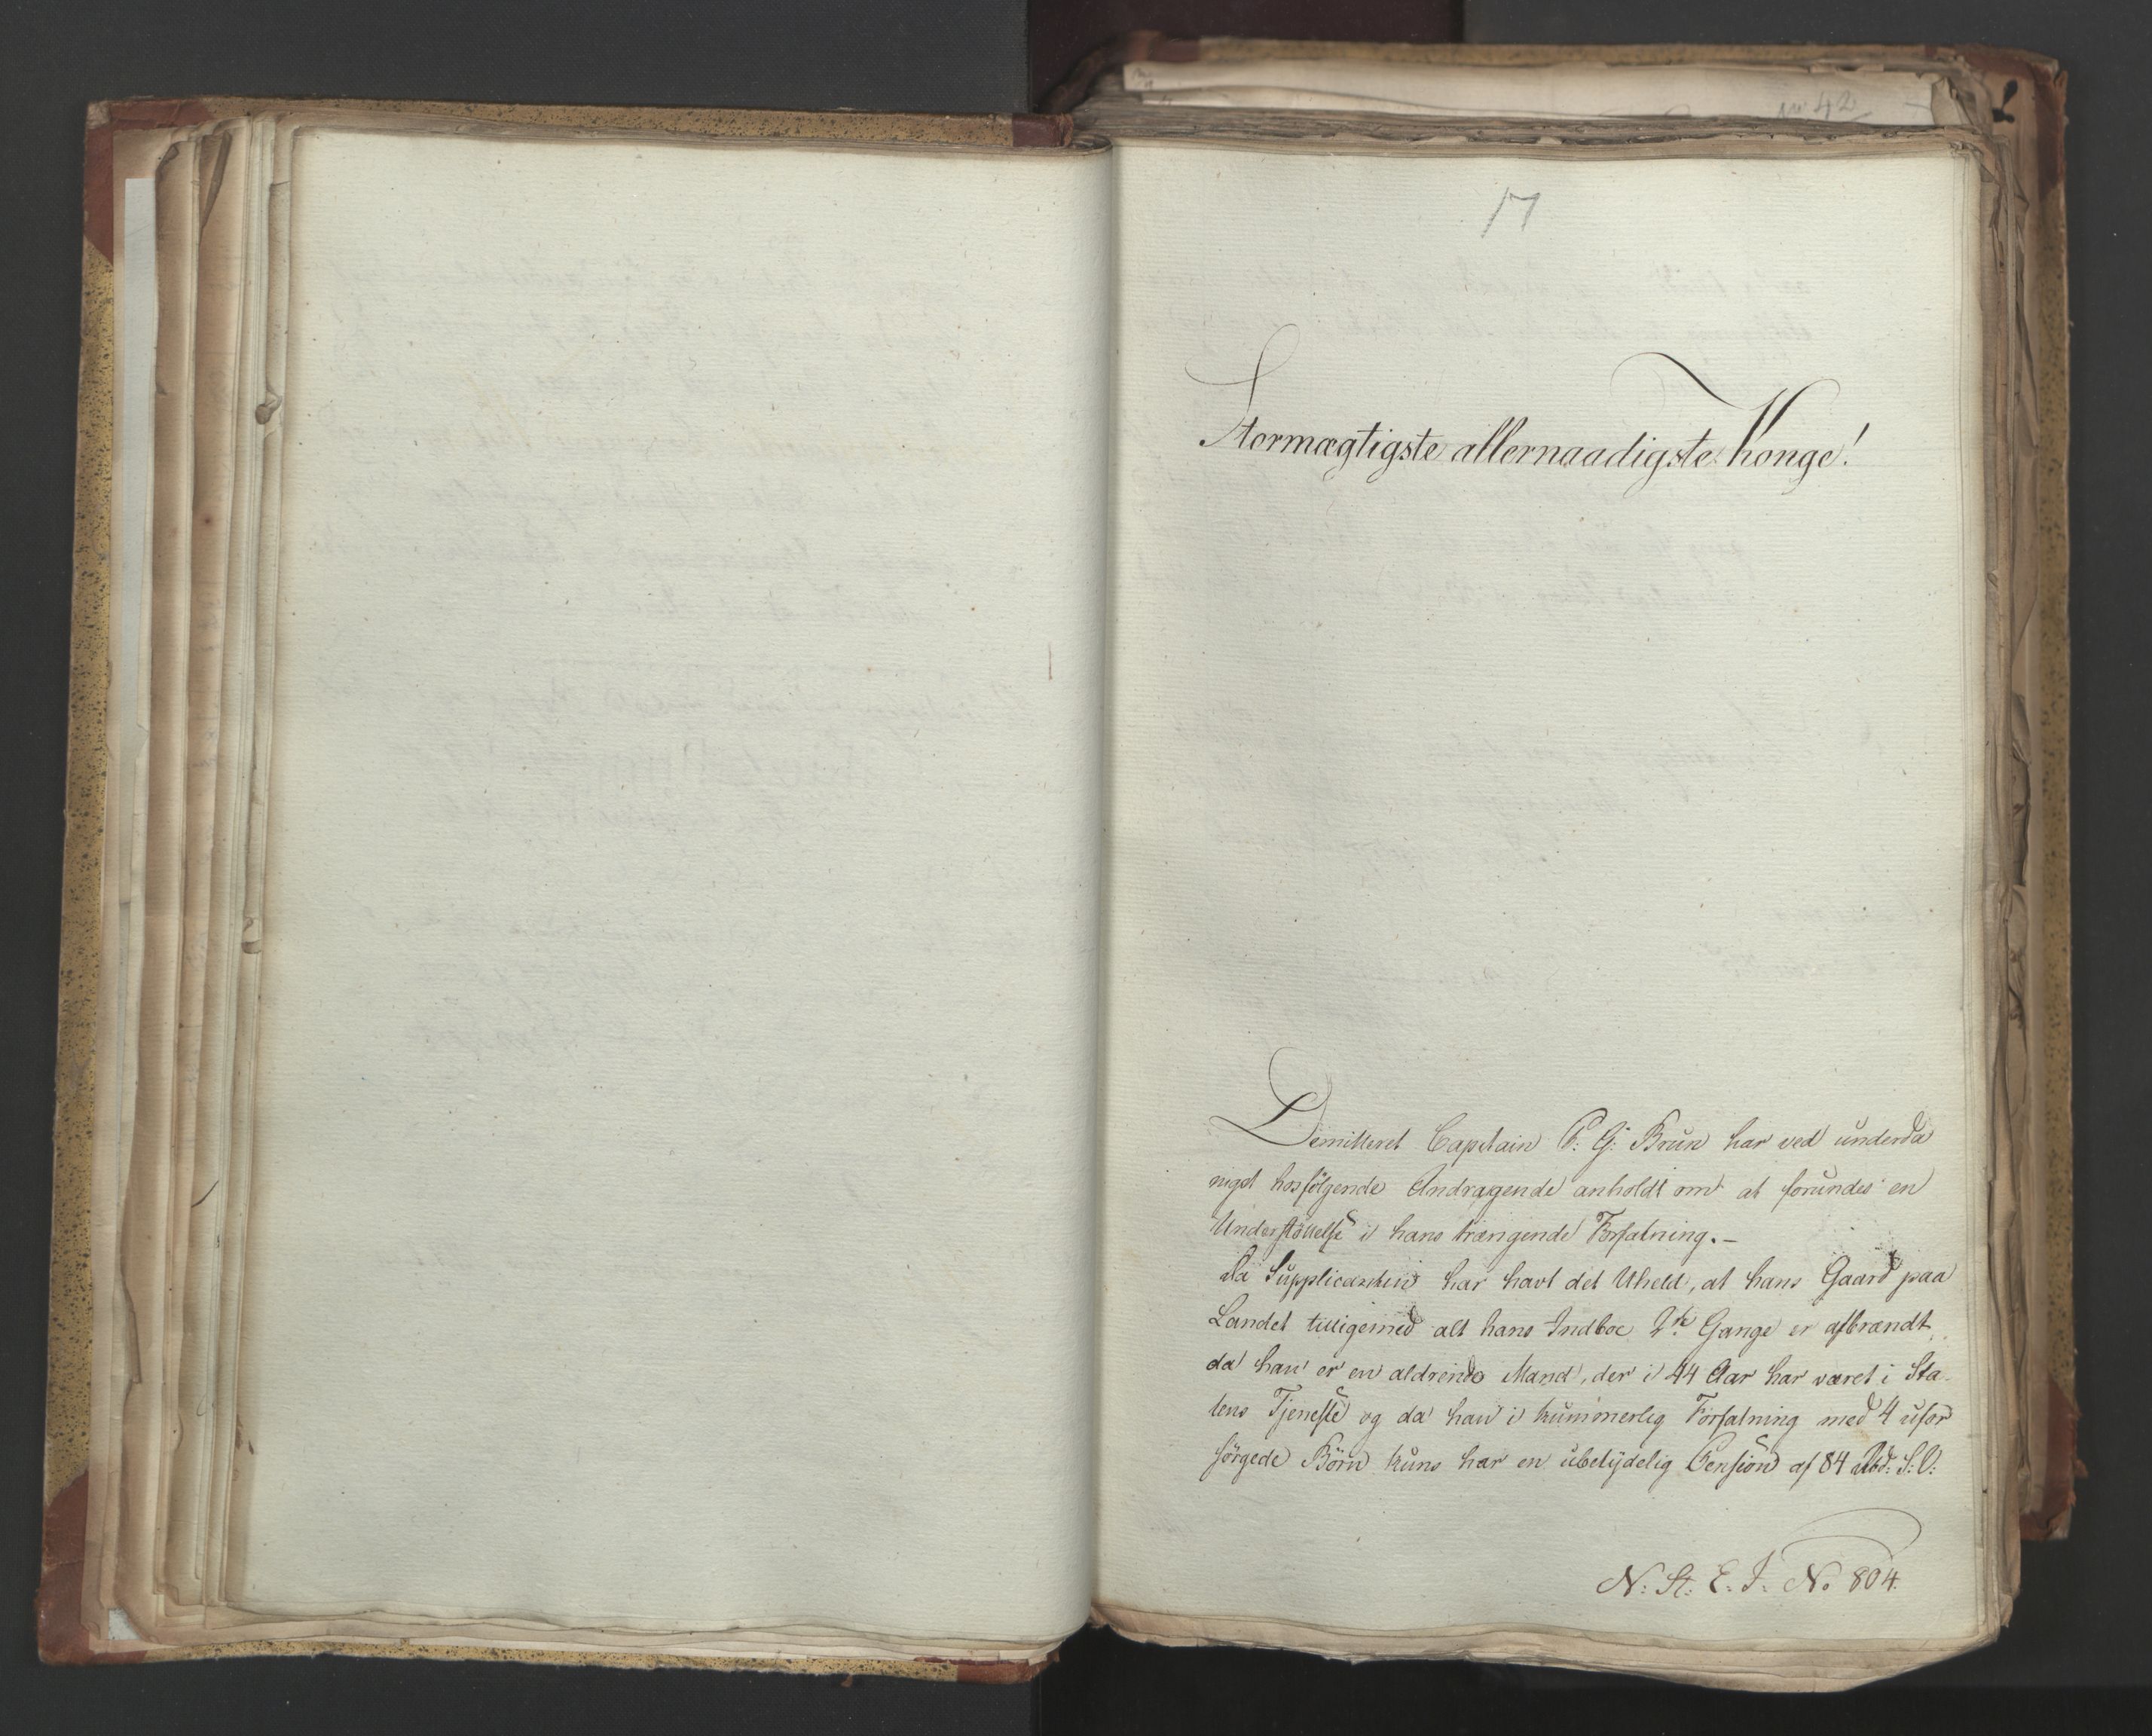 No 42
17
Stormægtigste allernaadigste Konge!
Demitteret Capitain P: G: Brun har ved underda
nigst hosfölgende Andragende anholdt om at forundes en
Understöttelse i hans trængende Forfatning. –
Da Supplicanten har havt det Uheld, at hans Gaard paa
Landet tilligemed alt hans Indboe 2de Gange er afbrændt
da han er en aldrende Mand, der i 44 Aar har været i Sta-
tens Tjeneste og da han i kummerlig Forfatning med 4 ufor
sörgede Börn kuns har en ubetydelig Pension af 84 Rbd: S: V:
N: St: E: J: No 804.